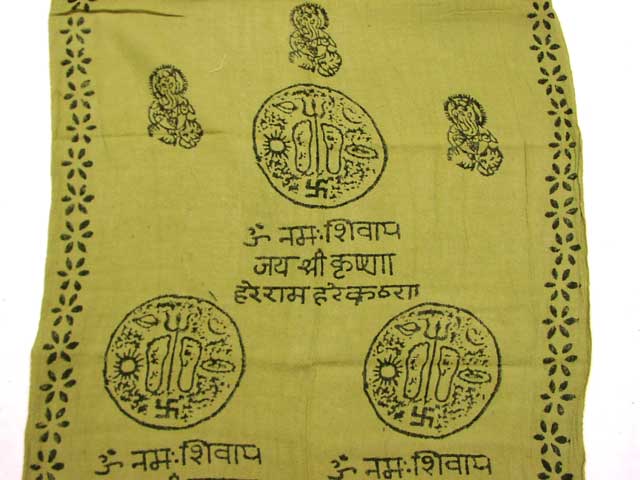 ॐ नमः शिवाय
जय श्री कृष्णा
हरे राम हरे कृष्णा
ॐ नमः शिवाय
ॐ नमः शिवाय